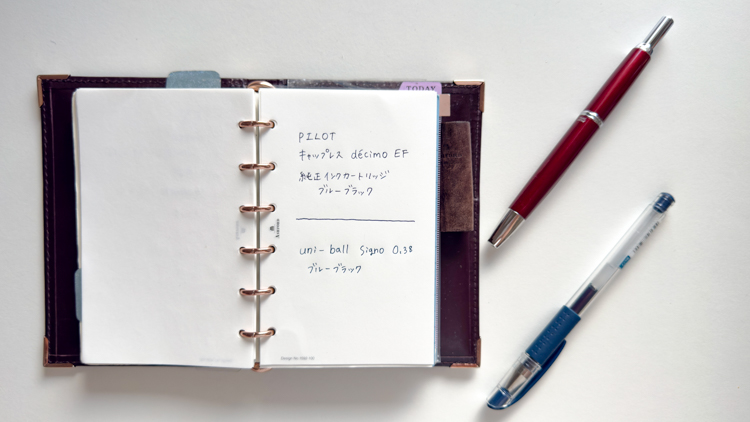 TODAY
PILOT
キャップレス décimo EF
純正インクカートリッジ
ブルーブラック
uni-ball Signo 0.38
ブルーブラック